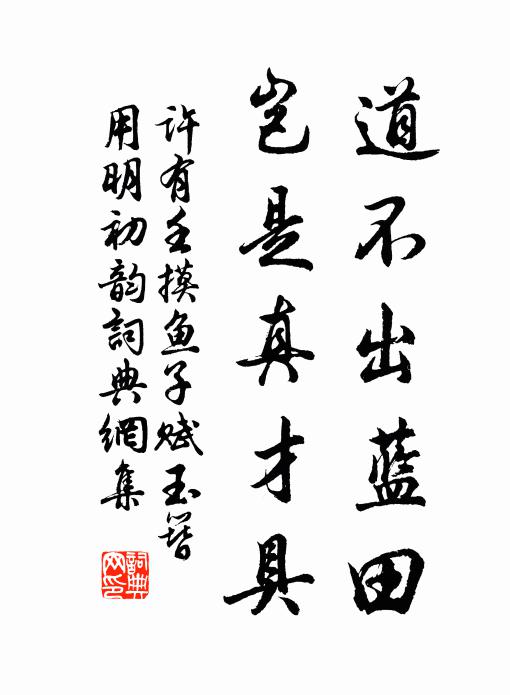 道不出藍田
豈是真才具
許有壬摸魚子賦玉簪
用明初韵詞典網集
詞典網印